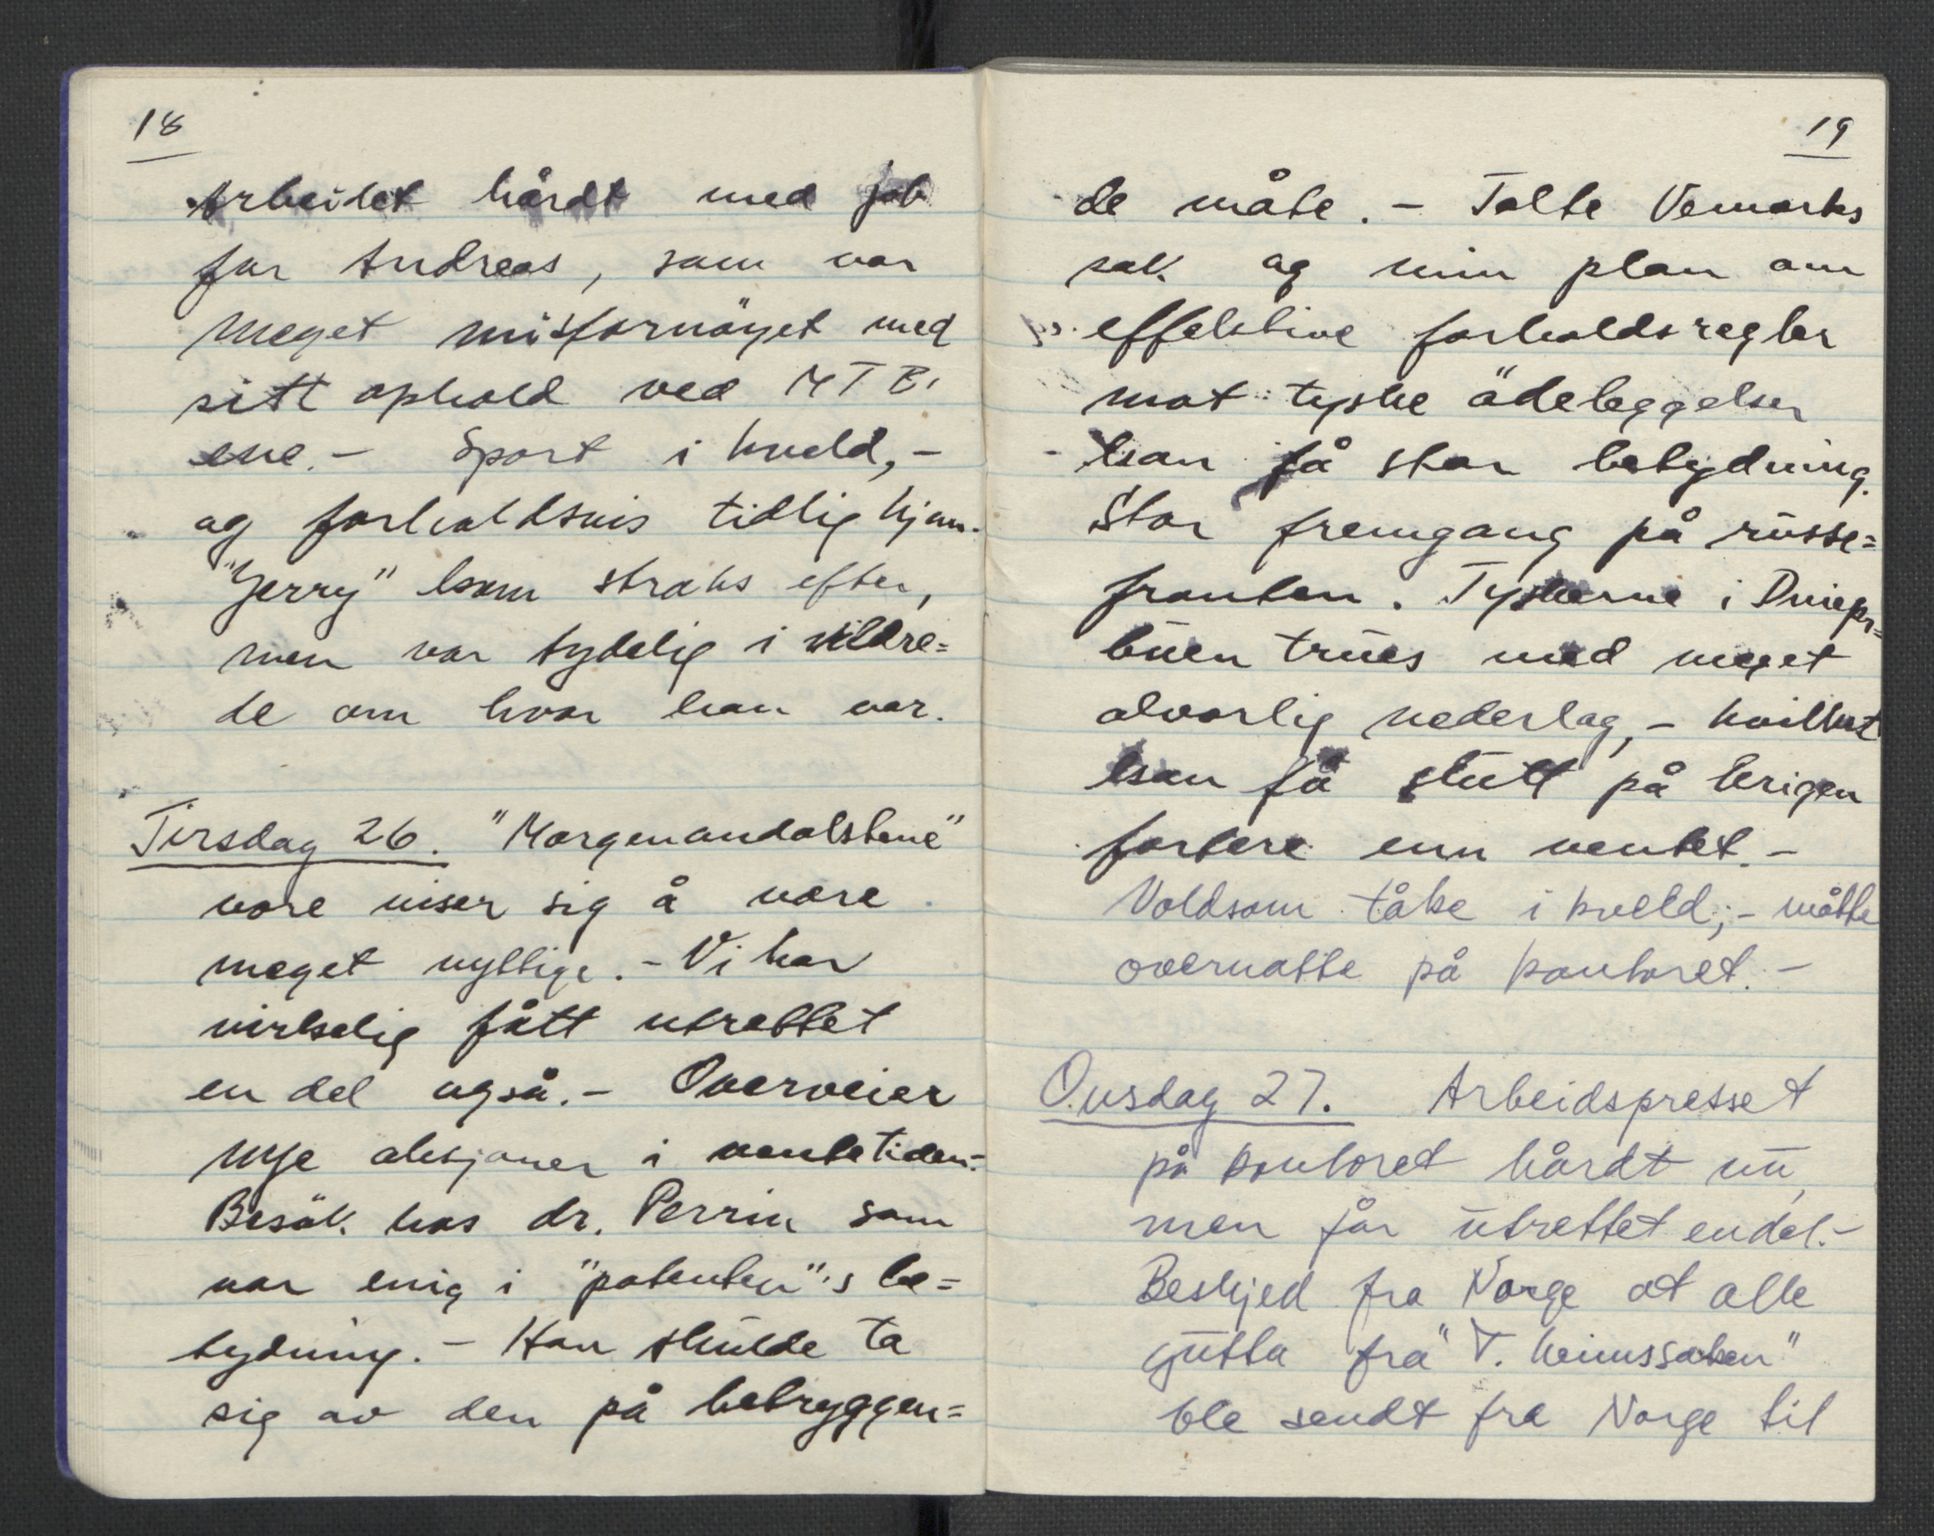 18
Arbeidet hårdt med job
for Andreas, som var
meget misfornöyet med
sitt ophold ved MTB,
ene. - Sport i kveld, -
og forholdsvis tidlig hjem.
"Jerry" kom straks efter,
men var tydelig i villre=
de om hvor han var.
Tirsdag 26. "Morgenandaktene"
våre viser sig å være
meget nyttige. - Vi har
virkelig fått utrettet
en del også. - Overveier
nye aksjoner i ventetiden. -
Besök hos dr. Perrin som
var enig i "patenten"'s be=
tydning. - Han skulde ta
sig av den på betryggen=
19
de måte. - Talte Vemorks
sak og min plan om
effektive forholdsregler
mot tyske ödeleggelser
kan få stor betydning.
Stor fremgang på russe=
fronten. Tyskerne i Dniepr=
buen trues med meget
alvorlig nederlag, - hvilket
kan få slutt på krigen
fortere enn ventet. -
Voldsom tåke i kveld; - måtte
overnatte på kontoret. -
Onsdag 27. Arbeidspresset
på kontoret hårdt nu,
men får utrettet endel. -
Beskjed fra Norge at alle
gutta fra "T. heimssaken"
ble sendt fra Norge til